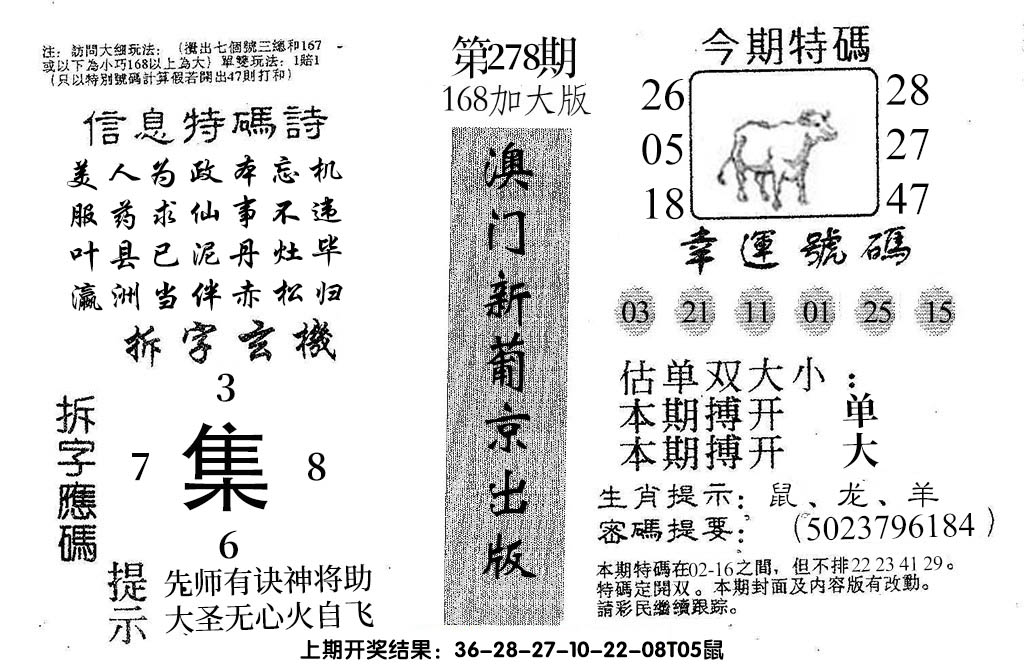 注：訪問大細玩法：（攪出七個號三總和167
或以下為小巧168以上為大）單雙玩法：1賠1
（只以特別號碼計算假若開出47則打和）
信息特碼詩
美人为政本忘机
服药求仙事不违
叶县已泥丹灶毕
瀛洲当伴赤松归
拆字玄機
拆字應碼
3
7 集 8
6
提示
先师有诀神将助
大圣无心火自飞
第278期
168加大版
澳门新葡京出版
今期特碼
26 28
05 27
18 47
幸運號碼
03 21 11 01 25 15
估单双大小：
本期搏开 单
本期搏开 大
生肖提示：鼠、龙、羊
密碼提要：（5023796184）
本期特碼在02-16之間，但不排22 23 41 29。
特碼定開双。本期封面及内容版有改動。
請彩民繼續跟踪。
上期开奖结果：36-28-27-10-22-08T05鼠